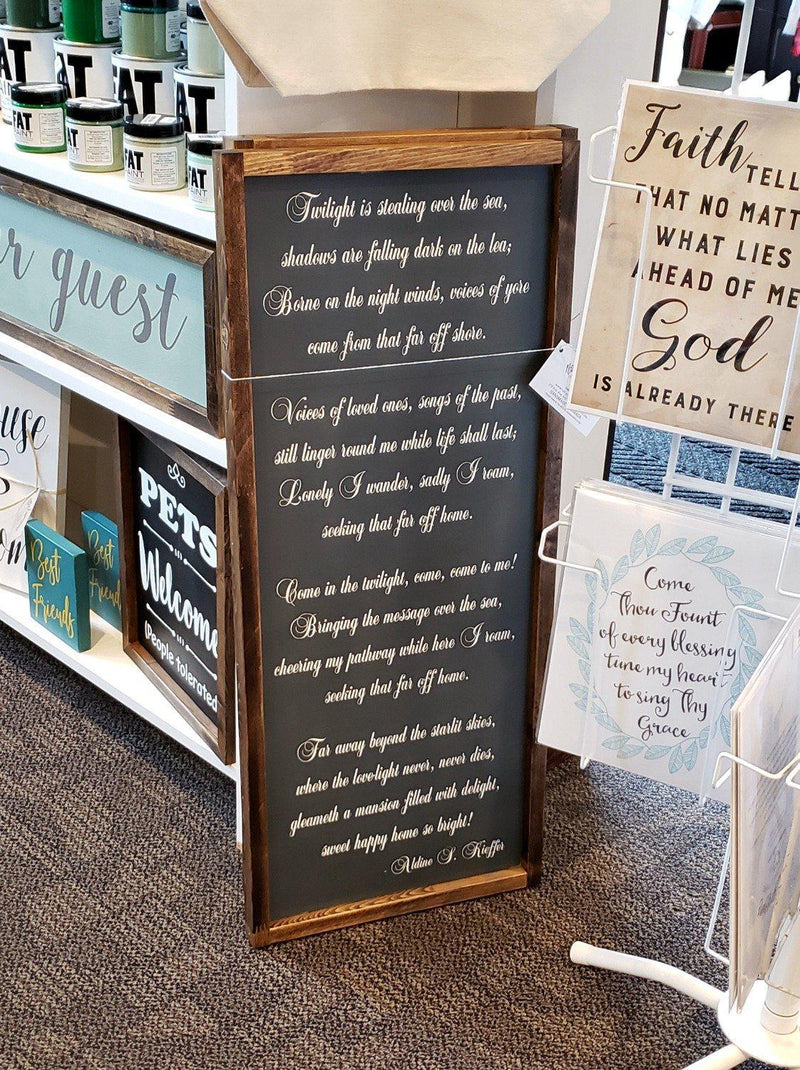 FAT
FAT
FAT
FAT
FAT
FAT
guest
Best
Friends
Best
Friends
PETS
Welcome
(People tolerated)
Twilight is stealing over the sea,
shadows are falling dark on the lea;
Borne on the night winds, voices of yore
come from that far off shore.
Voices of loved ones, songs of the past,
still linger round me while life shall last;
Lonely I wander, sadly I roam,
seeking that far off home.
Come in the twilight, come, come to me!
Bringing the message over the sea,
cheering my pathway while here I roam,
seeking that far off home.
Far away beyond the starlit skies,
where the love-light never, never dies,
gleameth a mansion filled with delight,
sweet happy home so bright!
- Aldine S. Kieffer
Faith TELL
THAT NO MATT
WHAT LIES
AHEAD OF ME
God
IS ALREADY THERE
Come
Thou Fount
of every blessing
tune my heart
to sing Thy
Grace